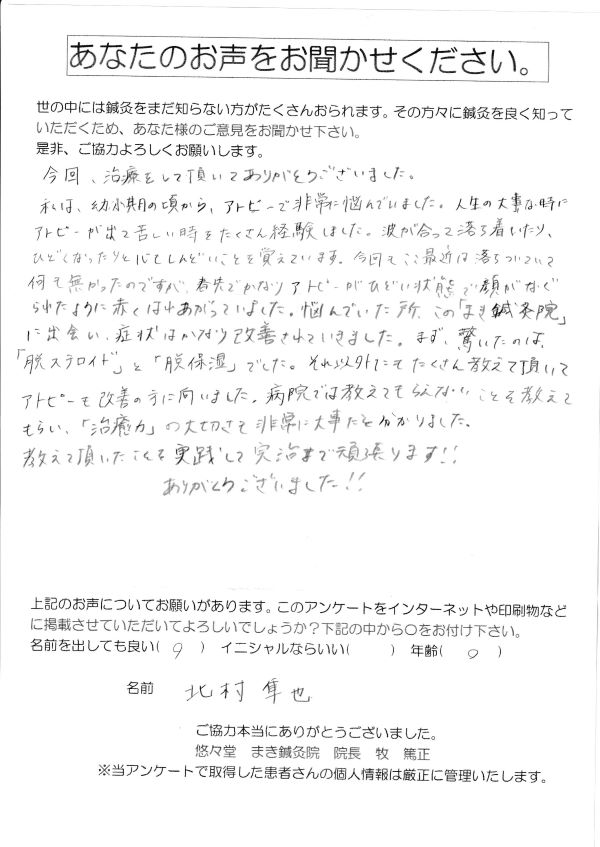 あなたのお声をお聞かせください。
世の中には鍼灸をまだ知らない方がたくさんおられます。その方々に鍼灸を良く知って
いただくため、あなた様のご意見をお聞かせ下さい。
是非、ご協力よろしくお願いします。
今回、治療をして頂いてありがとうございました。
私は、幼少期の頃から、アトピーで非常に悩んでいました。人生の大事な時に
アトピーが出て苦しい時をたくさん経験しました。波が合って落ち着いたり、
ひどくなったりとしてしんどいことを覚えています。今回もここ最近は落ちついていて
何も無かったのですが、春先でかなりアトピーがひどい状態で顔がなぐ
られたように赤くはれあがっていました。悩んでいた所、この「まき鍼灸院」
に出会い、症状はかなり改善されていきました。まず、驚いたのは、
「脱ステロイド」と「脱保湿」でした。それ以外にもたくさん教えて頂いて
アトピーも改善の方に向いました。病院では教えてもらえないことを教えて
もらい、「治癒力」の大切さを非常に大事だと分かりました。
教えて頂いたことを実践して完治まで頑張ります!!
ありがとうございました!!
上記のお声についてお願いがあります。このアンケートをインターネットや印刷物など
に掲載させていただいてよろしいでしょうか?下記の中から○をお付け下さい。
名前を出しても良い( ○ ) イニシャルならいい( ) 年齢( ○ )
名前 北村 隼也
ご協力本当にありがとうございました。
悠々堂 まき鍼灸院 院長 牧 篤正
※当アンケートで取得した患者さんの個人情報は厳正に管理いたします。